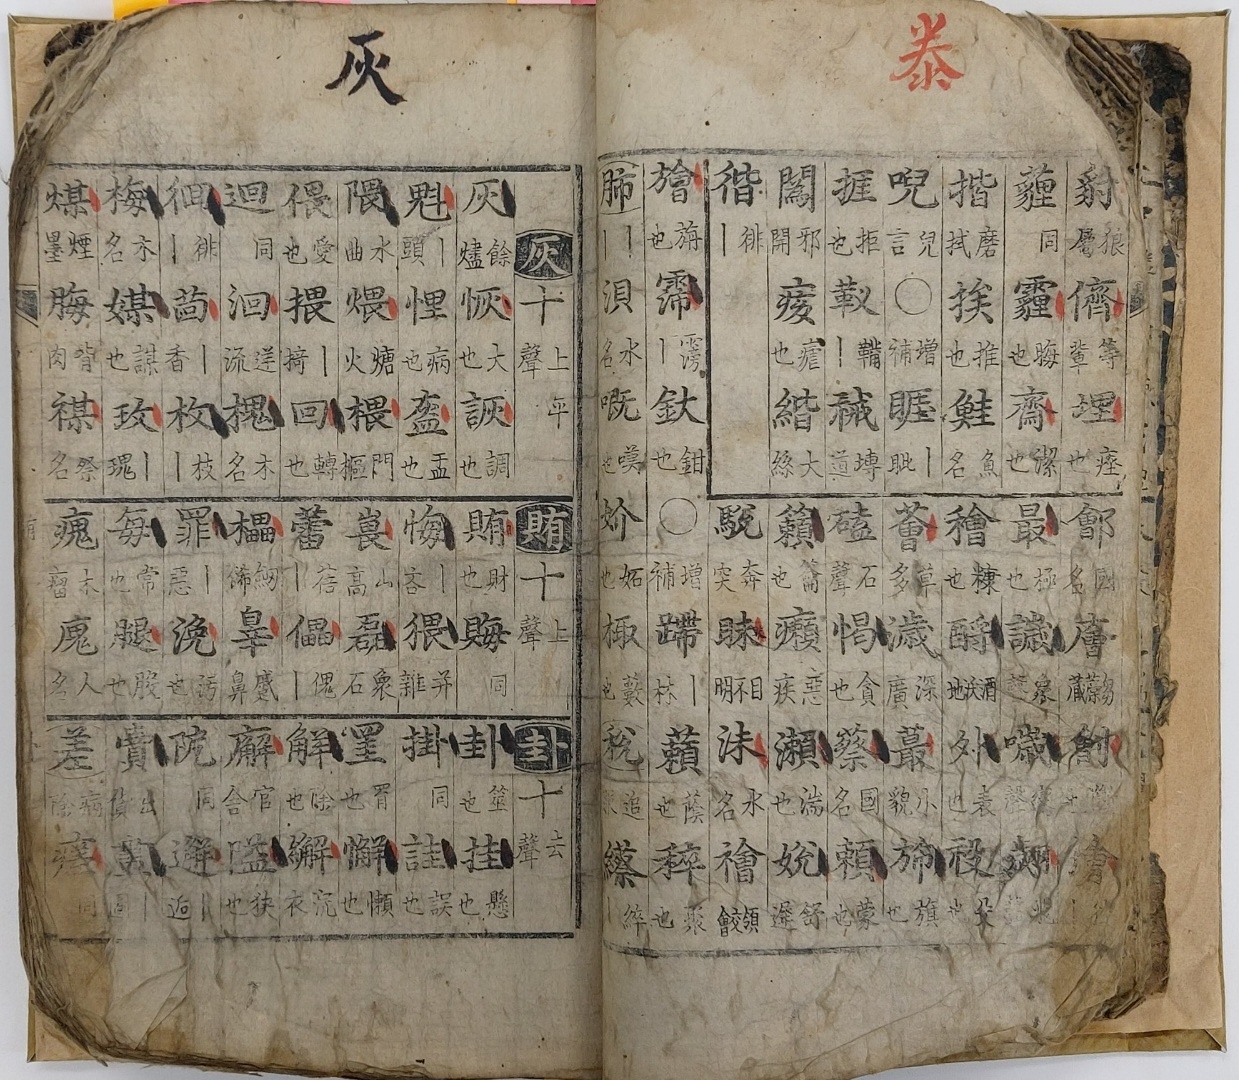 泰
豺 狼屬 儕 等輩 埋 瘞也
薶 同 霾 晦也 齋 潔也
揩 磨拭 挨 推也 鮭 魚名
唲 兒言 ○ 增補 睚 丨眦
捱 拒也 靫 鞴丨 祴 塼道
闒 邪開 痎 瘧也 緒 大絲
偕 徘丨
鄶 國名 廥 芻藁藏 創
最 極也 譏 衆 噦
穭 糠也 酹 酒沃地 外 表也 祋 殳也
薈 草多 濊 深廣 蕞 小貌 旆 旗也
磕 石聲 愒 貪也 蔡 國名 賴 蒙也
籟 籥也 癩 惡疾 瀨 湍也 娧 舒遲
駾 奔突 眛 目不明 沬 水名 襘 領會
旝 旃也 霈 霶丨 釱 鉗也 ○ 增補 蹛 林 藾 蔭也 稡 聚也
肺 丨丨 浿 水名 嘅 嘆也 妎 妬也 棷 藪也 稅 追 縩 綷丨
灰
灰 十 上平聲
灰 餘燼 恢 大也 詼 調也
魁 丨頭 悝 病也 盔 盂也
隈 水曲 煨 煻火 椳 門樞
偎 愛也 揋 丨掎 回 轉也
迴 同 洄 逆流 槐 木名
徊 徘丨 茴 丨香 枚 枝丨
梅 木名 媒 謀也 玫 丨瑰
煤 煙墨 脢 背肉 禖 祭名
賄 十 上聲
賄 財也 晦 同
悔 吝 猥 并雜
嵬 山高 磊 衆石
蕾 蓓丨 儡 傀丨
櫑 辠 蹙鼻
罪 丨惡 浼 汚也
每 常也 腿 股也
瘣 木瘤 廆 人名
卦 十 去聲
卦 筮也 挂 懸也
掛 同 詿 誤也
罣 罥也 懈 懶也
解 除也 繲 浣衣
廨 官舍 隘 狹也
阨 同 邂 丨逅
賣 出貨
差 病除 瘥 同